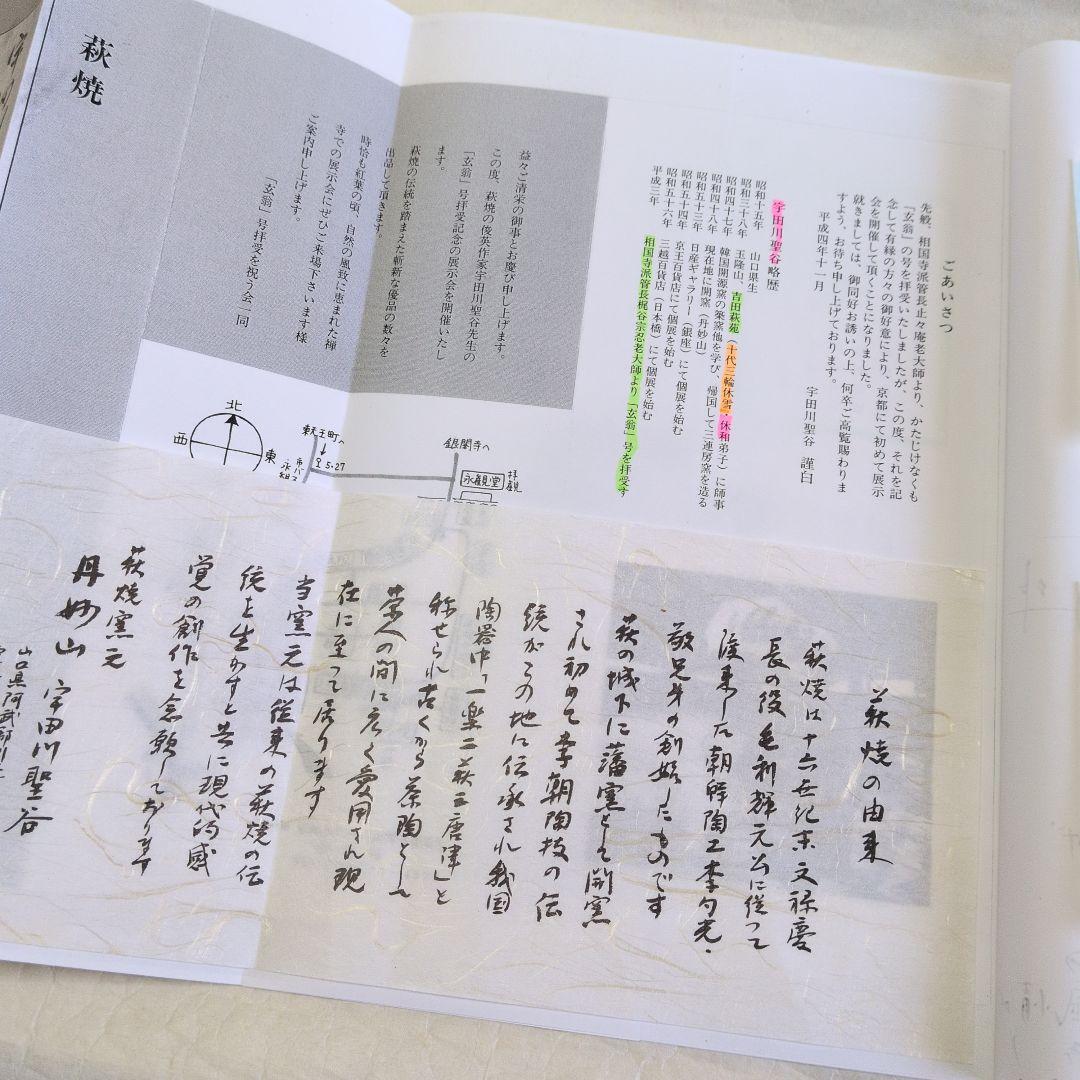 ごあいさつ
先般、相国寺派管長止々庵老大師より、かたじけなくも
「玄翁」の号を拝受いたしましたが、この度、それを記
念して有縁の方々の御好意により、京都にて初めて展示
会を開催して頂くことになりました。
就きましては、御同好お誘いの上、何卒ご高覧賜わりま
すよう、お待ち申し上げております。
平成四年十一月
宇田川聖谷 謹白
宇田川聖谷略歴
昭和十五年 山口県生
昭和三十八年 玉隆山、吉田萩苑(十代三輪休雪・休和弟子)に師事
昭和四十七年 韓国開源窯の築窯他を学び、帰国して三連房窯を造る
昭和四十八年 現在地に開窯(丹妙山)
昭和五十三年 日産ギャラリー(銀座)にて個展を始む
昭和五十四年 京王百貨店にて個展を始む
昭和五十六年 三越百貨店(日本橋)にて個展を始む
平成三年 相国寺派管長梶谷宗忍老大師より「玄翁」号を拝受す
益々ご清栄の御事とお慶び申し上げます。
この度、萩焼の俊英作家宇田川聖谷先生の
「玄翁」号拝受記念の展示会を開催いたし
ます。
萩焼の伝統を踏まえた斬新な優品の数々を
出品して頂きます。
時恰も紅葉の頃、自然の風致に恵まれた禅
寺での展示会にぜひご来場下さいます様
ご案内申し上げます。
「玄翁」号拝受を祝う会一同
萩焼
北
西
東
天王町へ
5・27
市バス
銀閣寺へ
永観堂
拝観
萩焼の由来
萩焼は十六世紀末文禄慶
長の役毛利輝元公に従って
渡来した朝鮮陶工李勺光・
敬兄弟の創始したものです
萩の城下に藩窯として開窯
され初めて李朝陶技の伝
統がこの地に伝承され我国
陶器中「一楽二萩三唐津」と
称せられ古くから茶陶として
茶人の間に広く愛用され現
在に至って居ります
当窯元は従来の萩焼の伝
統を生かすと共に現代的感
覚の創作を念願しております
萩焼窯元
丹妙山 宇田川聖谷
山口県阿武郡